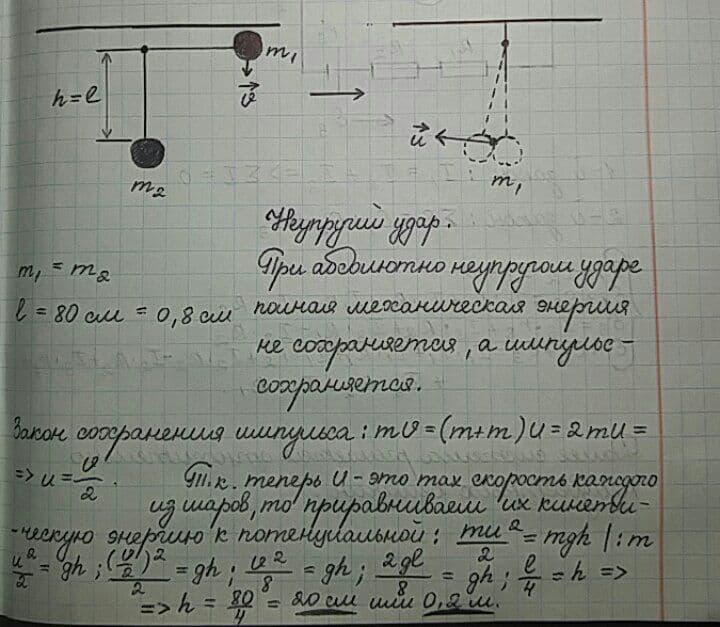 m₁
h = l
v⃗
u⃗
m₂
m₁
Неупругий удар.
m₁ = m₂
При абсолютно неупругом ударе
l = 80 см = 0,8 см
полная механическая энергия
не сохраняется, а импульс -
сохраняется.
Закон сохранения импульса: mv = (m+m)u = 2mu =
=> u = v/2. Т.к. теперь u - это max скорость каждого
из шаров, то приравниваем их кинети-
-ческую энергию к потенциальной: mu²/2 = mgh |:m
u²/2 = gh; (v/2)²/2 = gh; v²/8 = gh; 2gl/8 = gh; l/4 = h =>
=> h = 80/4 = 20 см или 0,2 м.